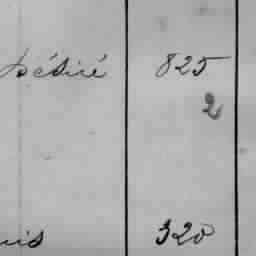 Désiré 825
2
uis 320